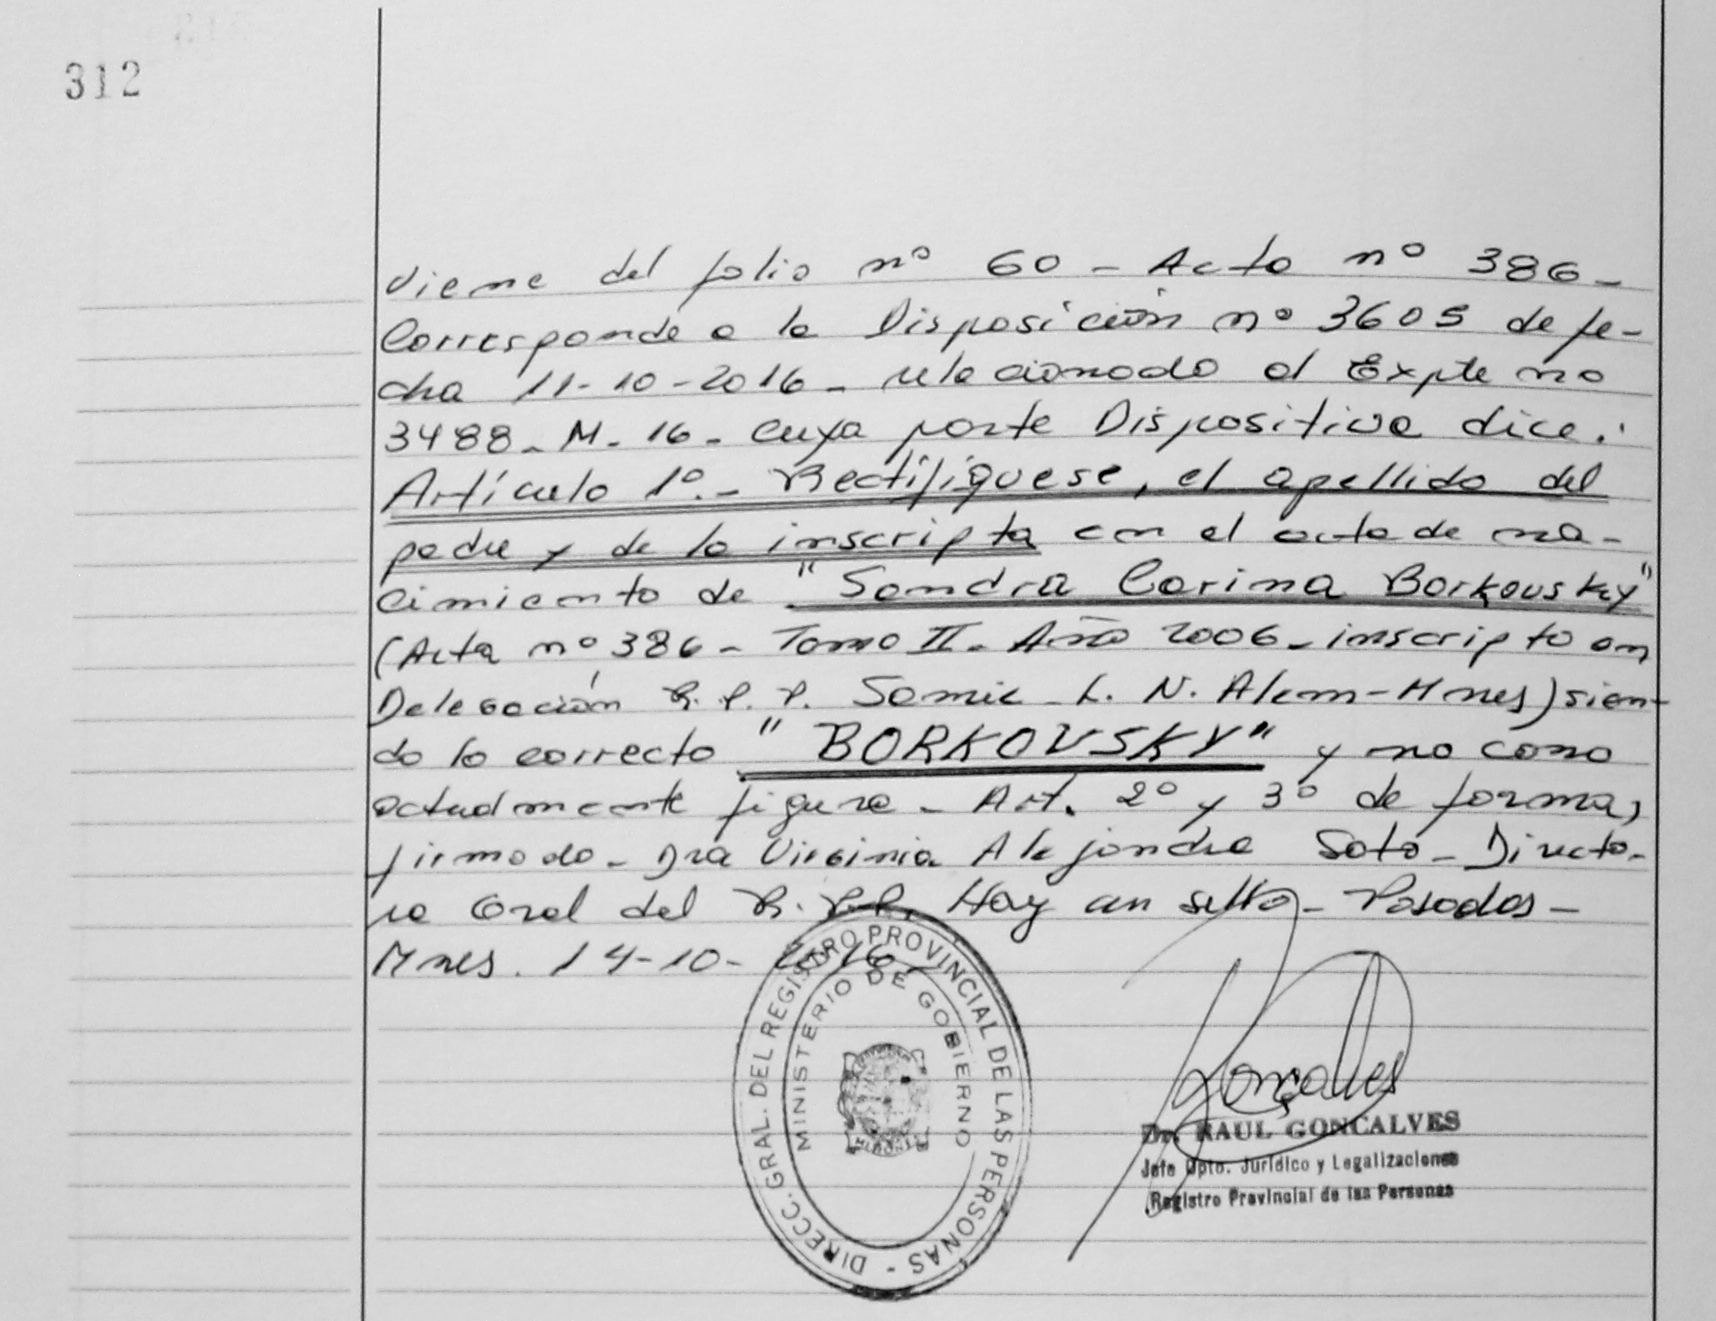 312
Viene del folio nº 60 - Acta nº 386 -
Corresponde a la Disposición nº 3605 de fe-
cha 11-10-2016 - relacionado al Expte nro
3488 - M - 16 - cuya parte Dispositiva dice:
Artículo 1º - Rectifíquese, el apellido del
padre y de la inscripta en el acta de na-
cimiento de "Sandra Carina Borkouskey"
(Acta nº 386 - Tomo II - Año 2006 - inscripto en
Delegación R. P. P. Samic - L. N. Alem - Mnes) sien-
do lo correcto "BORKOVSKY" y no como
actualmente figura - Art. 2º y 3º de forma,
firmado - Dra Virginia Alejandra Soto - Directo-
ra Gral del R. P. P. Hay un sello - Posadas -
Mnes. 14-10-2016 -
DIRECC. GRAL. DEL REGISTRO PROVINCIAL DE LAS PERSONAS -
MINISTERIO DE GOBIERNO
Goncalves
Dr. RAUL GONCALVES
Jefe Dpto. Jurídico y Legalizaciones
Registro Provincial de las Personas